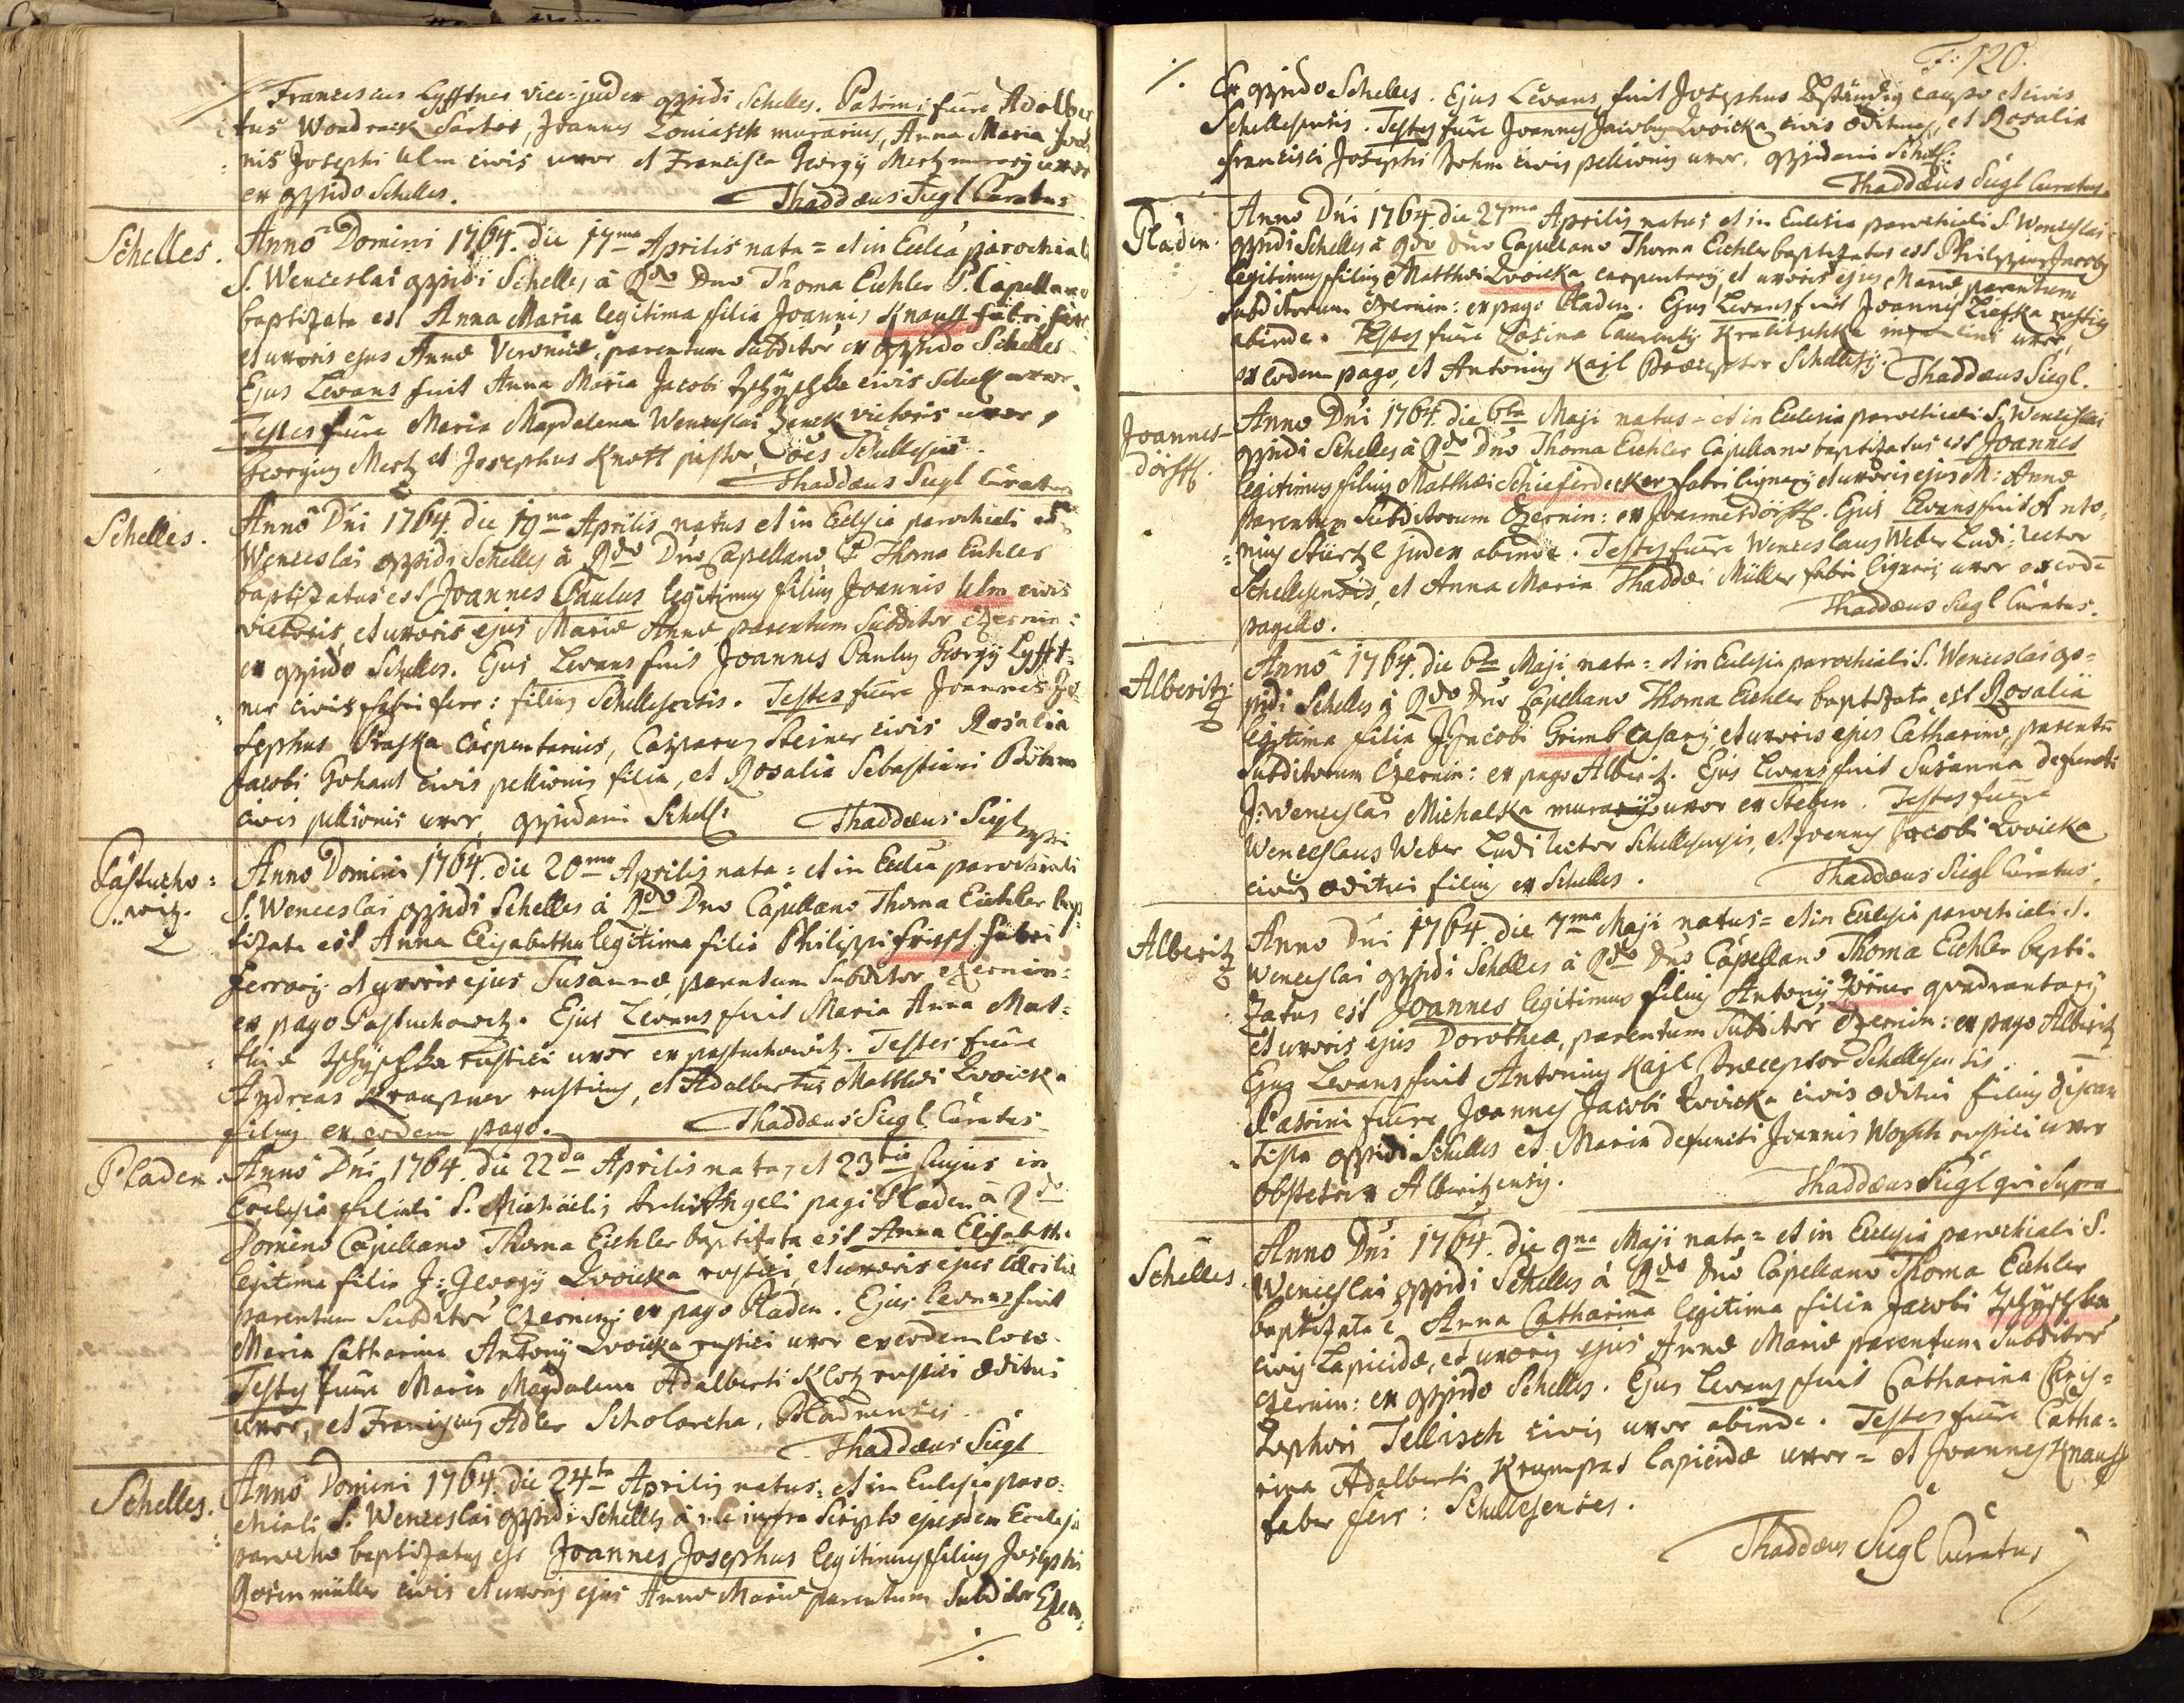 Franciscus Lyfftner vice-judex oppidi Schelles. Patrini fuere Adalber
tus Wondrack Sartor, Joannes Loniasch murarius, Anna Maria
nis Josephi Ulm civis uxor et Francisca Georgÿ Mertz murarÿ uxor
ex oppido Schelles.
Thaddæus Siegl Curatus
Schelles.
Anno Domini 1764. die 17ma Aprilis nata = et in Ecclia parochiali
S. Wenceslai oppidi Schelles à Rdo Dno Thoma Eichler P. Capellano
baptizata est Anna Maria legitima filia Joannis Knauff fabri ferr
et uxoris ejus Annæ Veronicæ, parentum Subditor ex oppido Schelles
Ejus Levans fuit Anna Maria Jacobi civis Schell uxor.
Testes fuere Maria Magdalena Wenceslai Zenck vietoris uxor,
Georgius Mertz et Josephus Knott pistor, Oes Schellesens.
Thaddæus Siegl Curatus
Schelles.
Anno Dni 1764. die 19na Aprilis natus et in Eclesia parochiali S.
Wenceslai oppidi Schelles à Rdo Dno Capellano P. Thoma Eichler
baptizatus est Joannes Paulus legitimus filius Joannis Ulm civis
vietoris, et uxoris ejus Mariæ Annæ parentum Subditor Czernin:
ex oppido Schelles. Ejus Levans fuit Joannes Paulus Georgÿ Lyfft=
ner civis fabri ferr: filius Schellesensis. Testes fuere Joannes Jo
sephus Praska Carpentarius, Casparus Steiner civis Rosalia
Jacobi Gohaut civis pellionis filia, et Rosalia Sebastiani Böhm
civis pellionis uxor, oppidani Schells:
Thaddæus Siegl
Pastucho=
witz.
Anno Domini 1764. die 20ma Aprilis nata = et in Ecclia parochiali
S. Wenceslai oppidi Schelles à Rdo Dno Capellano Thoma Eichler bap
tizata est Anna Elisabetha legitima filia Philippi Frissl fabri
ferrarÿ et uxoris ejus Susannæ parentum Subditor Czernin:
ex pago Pastuchowitz. Ejus Levans fuit Maria Anna Mat=
thiæ rustici uxor ex pastuchowitz. Testes fuere
Andreas Kraupner rusticus, et Adalbertus Matthæi Zwoicka
filius ex eodem pago.
Thaddæus Siegl Curatus
Pladen.
Anno Dni 1764. die 22da Aprilis nata, et 23tia hujus in
Ecclesia filiali S. Michäelis ArchiAngeli pagi Pladen à Rdo
Domino Capellano Thoma Eichler baptizata est Anna Elisabeth.
legitima filia J: Georgÿ Zwoicka rustici, et uxoris ejus Cæciliæ
parentum Subditor, Czernin: ex pago Pladen. Ejus Levans fuit
Maria Catharina Antonÿ Zwoicka rustici uxor ex eodem loco.
Testes fuere Maria Magdalena Adalberti Klotz rustici æditui
uxor, et Franciscus Adler Scholarcha, Pladnenses.
Thaddæus Siegl
Schelles.
Anno Domini 1764. die 24ta Aprilis natus = et in Eclesia paro=
chiali S. Wenceslai oppidi Schelles à me infra Scripto ejusdem Ecclesiæ
parocho baptizatus est Joannes Josephus legitimus filius Josephi
Rosenmüller civis et uxoris ejus Annæ Mariæ parentum Subditor Czern:
./.
F: 120.
./. Ex oppido Schelles. Ejus Levans fuit Josephus Beständig caupo et civis
Schellesensis. Testes fuere Joannes Jacobus Zwoicka civis æditus, et Rosalia
Francisci Josephi Zohm civis pellionis uxor, oppidani Schells:
Thaddæus Siegl Curatus
Pladen.
Anno Dni 1764. die 27ma Aprilis natus et in Eclesia parochiali S. Wenceslai
oppidi Schelles à Rdo Dno Capellano Thoma Eichler baptizatus est Philippus Jacobus
legitimus filius Matthæi Zwoicka carpentarÿ, et uxoris ejus Mariæ parentum
Subditorum Czernin: ex pago Pladen. Ejus Levans fuit Joannes Liefka rusticus
abinde. Testes fuere Rosina Laurentÿ Kralitschka uxor,
ex eodem pago, et Antonius Kajl Præceptor Schellesÿ.
Thaddæus Siegl.
Joannes-
dörff.
Anno Dni 1764. die 6ta Maji natus = et in Eclesia parochiali S. Wenceslai
oppidi Schelles à Rdo Dno Thoma Eichler Capellano baptizatus est Joannes
legitimus filius Matthæi Schieferdecker fabri lignarÿ et uxoris ejus M: Annæ
parentum Subditorum Czernin: ex Joannesdörff. Ejus Levans fuit Anto=
nius Stürtzl judex abinde. Testes fuere Wenceslaus Weber Ludi-rector
Schellesensis, et Anna Maria Thaddæi Müller fabri lignarÿ uxor ex eod
pagello.
Thaddæus Siegl Curatus.
Alberitz
Anno 1764. die 6ta Maji nata = et in Eclesia parochiali S. Wenceslai op=
pidi Schelles à Rdo Dno Capellano Thoma Eichler baptizata est Rosalia
legitima filia J: Jacobi Grimb casarÿ et uxoris ejus Catharinæ, parentu
Subditorum Czernin: ex pago Alberitz. Ejus Levans fuit Susanna defuncti
J: Wenceslai Michalka murarÿ uxor ex Steben. Testes fuere
Wenceslaus Weber Ludi rector Schellesensis, et Joannes Jacobi Zwoicka
civis æditui filius ex Schelles.
Thaddæus Siegl Curatus.
Alberitz
Anno Dni 1764. die 7ma Maji natus = et in Eclesia parochiali S.
Wenceslai oppidi Schelles à Rdo Dno Capellano Thoma Eichler bapti=
zatus est Joannes legitimus filius Antonÿ Zörner quadrantarÿ
et uxoris ejus Dorotheæ, parentum Subditor Czernin: ex pago Alberitz
Ejus Levans fuit Antonius Kajl Præceptor Schellesensis.
Patrini fuere Joannes Jacobi Zwoicka civis æditui filius discan
tista oppidi Schelles et Maria defuncti Joannis Worsch rustici uxor
obstetrix Alberitzensis.
Thaddæus Siegl qui Supra
Schelles.
Anno Dni 1764. die 9na Maji nata = et in Eclesia parochiali S.
Wenceslai oppidi Schelles à Rdo Dno Capellano Thoma Eichler
baptizata e Anna Catharina legitima filia Jacobi
civis Lapicidæ, et uxoris ejus Annæ Mariæ parentum Subditor
Czernin: ex oppido Schelles. Ejus Levans fuit Catharina Chris=
tophori Tellisch civis uxor abinde. Testes fuere Catha=
rina Adalberti Krumpas Lapicidæ uxor = et Joannes Knauff
faber ferr: Schellesenses.
Thaddæus Siegl Curatus